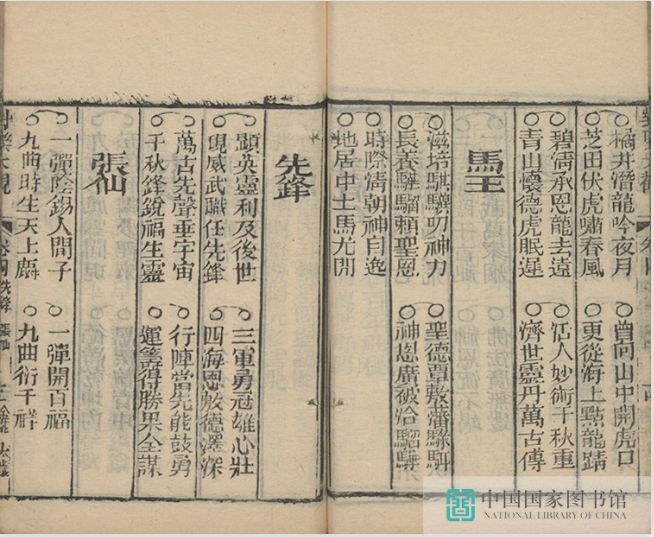 橘井潛龍吟夜月　曾向山中開虎口
芝田伏虎嘯春風　更從海上點龍睛
碧清承恩龍去遠　活人妙術千秋重
青山懷德虎眠遲　濟世靈丹萬古傳
馬王
滋培騏驥叨神力　聖德覃敷蕃騄駬
長養驊騮賴聖恩　神恩廣被洽
時際清朝神自逸
地居中土馬尤閒
先鋒
顯英靈利及後世　三軍勇冠雄心壯
現威武職任先鋒　四海恩敷德澤深
萬古先聲垂宇宙　行陣當先能鼓勇
千秋鋒銳福生靈　運籌得勝果全謀
張仙
一彈蔭錫人間子　一彈開百福
九曲時生天上麟　九曲衍千祥
大觀　卷四　先鋒　張仙
中国国家图书馆
NATIONAL LIBRARY OF CHINA